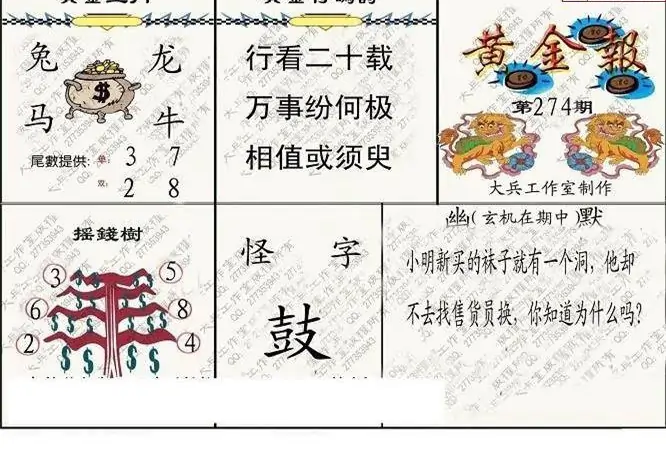 兔 龙
$
马 牛
尾數提供: 单: 3 7
双: 2 8
行看二十载
万事纷何极
相值或须臾
黄金報
第274期
大兵工作室制作
摇錢樹
3 5
6 8
2 4
怪 字
鼓
幽(玄机在期中)默
小明新买的袜子就有一个洞，他却
不去找售货员换，你知道为什么吗?
大兵工作室版权所有
QQ: 277353943